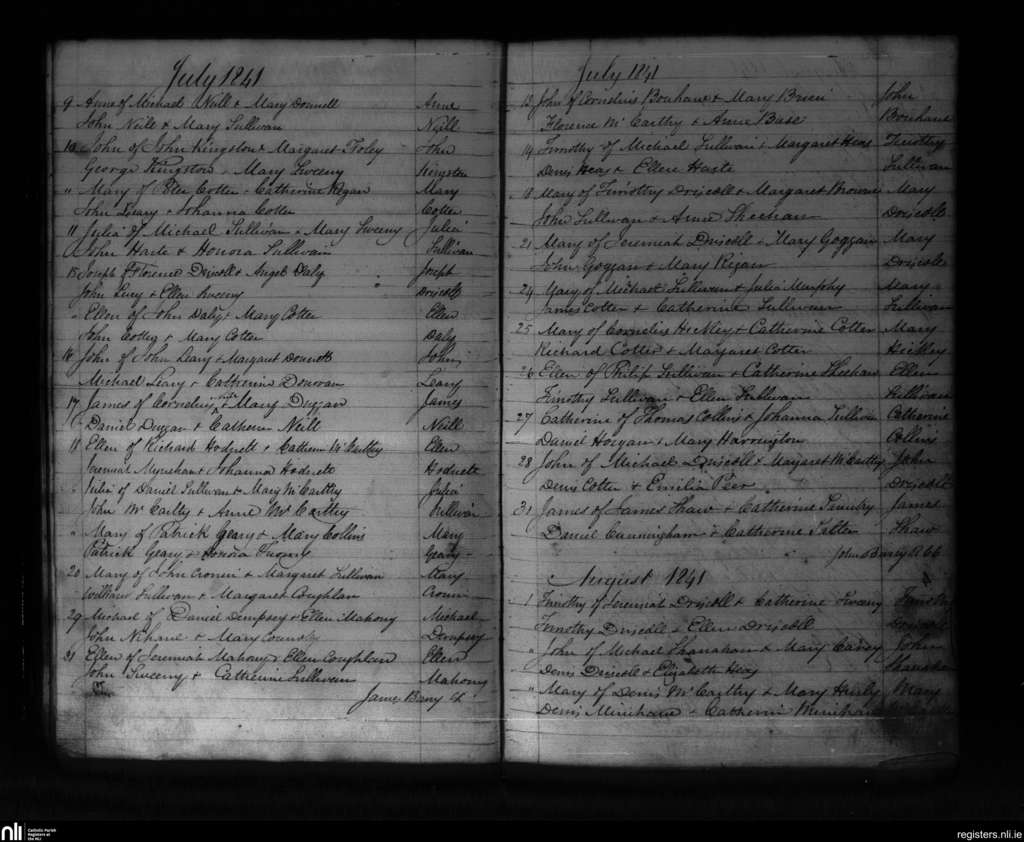 July 1841
9 Anne of Michael Neill & Mary Donnell Anne
John Neill & Mary Sullivan Neill
10 John of John Kingston & Margaret Foley John
George Kingston & Mary Sweeny Kingston
" Mary of Peter Cotter & Catherine Regan Mary
John Leary & Johanna Cotter Cotter
11 Julia of Michael Sullivan & Mary Sweeny Julia
John Harte & Honora Sullivan Sullivan
15 Joseph of Florence Driscoll & Daly Joseph
John Lucy & Ellen Sweeny Driscoll
" Ellen of John Daly & Mary Cotter Ellen
John & Mary Cotter Daly
16 John of John Leary & Margaret John
Michael Leary & Catherine Donovan Leary
17 James of Cornelius Neill & Mary Duggan James
Daniel Duggan & Catherine Neill Neill
18 Ellen of Richard Hodnett & Catherine McCarthy Ellen
Jeremiah & Johanna Hodnett Hodnett
" Julia of Daniel Sullivan & Mary McCarthy Julia
John McCarthy & Anne McCarthey Sullivan
" Mary of Patrick Geary & Mary Collins Mary
Patrick Geary & Honora Geary
20 Mary of John Cronin & Margaret Sullivan Mary
William Sullivan & Margaret Coughlan Cronin
29 Michael of Daniel Dempsey & Ellen Mahony Michael
John & Mary Dempsey
31 Ellen of Jeremiah Mahony & Ellen Coughlan Ellen
John Sweeny & Catherine Sullivan Mahony
James Barry
July 1841
13 John of Cornelius Bouhane & Mary Brien John
Florence McCarthy & Anne Base Bouhane
14 Timothy of Michael Sullivan & Margaret Heas Timothy
Denis Heas & Ellen Harte Sullivan
Mary of Timothy Driscoll & Margaret Browne Mary
John Sullivan & Anne Sheehan Driscoll
21 Mary of Jeremiah Driscoll & Mary Goggan Mary
John Goggan & Mary Regan Driscoll
24 Mary of Michael Sullivan & Julia Murphy Mary
James Cotter & Catherine Sullivan Sullivan
25 Mary of Cornelius Heckley & Catherine Cotter Mary
Richard Cotter & Margaret Cotter Heckley
26 Ellen of Philip Sullivan & Catherine Sheehan Ellen
Timothy Sullivan & Ellen Sullivan Sullivan
27 Catherine of Thomas Collins & Johanna Sullivan Catherine
Daniel Horgan & Mary Harrington Collins
28 John of Michael Driscoll & Margaret McCarthy John
Denis Cotter & Emilia Peer Driscoll
31 James of James Shaw & Catherine James
Daniel Cunningham & Catherine Shaw
John Barry
August 1841
1 Timothy of Jeremiah Driscoll & Catherine Sweeny Timothy
Timothy Driscoll & Ellen Driscoll Driscoll
" John of Michael Shanahan & Mary John
Denis Driscoll & Elizabeth Heas Shanahan
" Mary of Denis McCarthy & Mary Hurly Mary
Denis Minihane & Catherine Minihane
nli Catholic Parish
Registers at
the NLI
registers.nli.ie